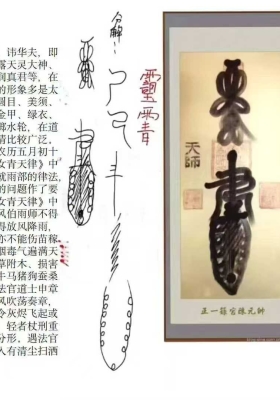 讳华夫，即
露天灵大神、
润真君等，在
的形象多是太
圆目、美须、
金甲、绿衣，
掷水轮，在道
情比较广泛，
农历五月初十
女青天律》中
就雨部的律法，
的问题作了要
女青天律》中
风伯雨师不得
得放风降雨，
亦不能伤苗稼
烟毒气遍满天
草附木、损害
牛马猪狗蚕桑
法官道士申章
风吹荡奏章，
令灰烬飞起或
轻者杖刑重
分形，遇法官
人有清尘扫洒
分解：
天師
正一籙官殊元帥